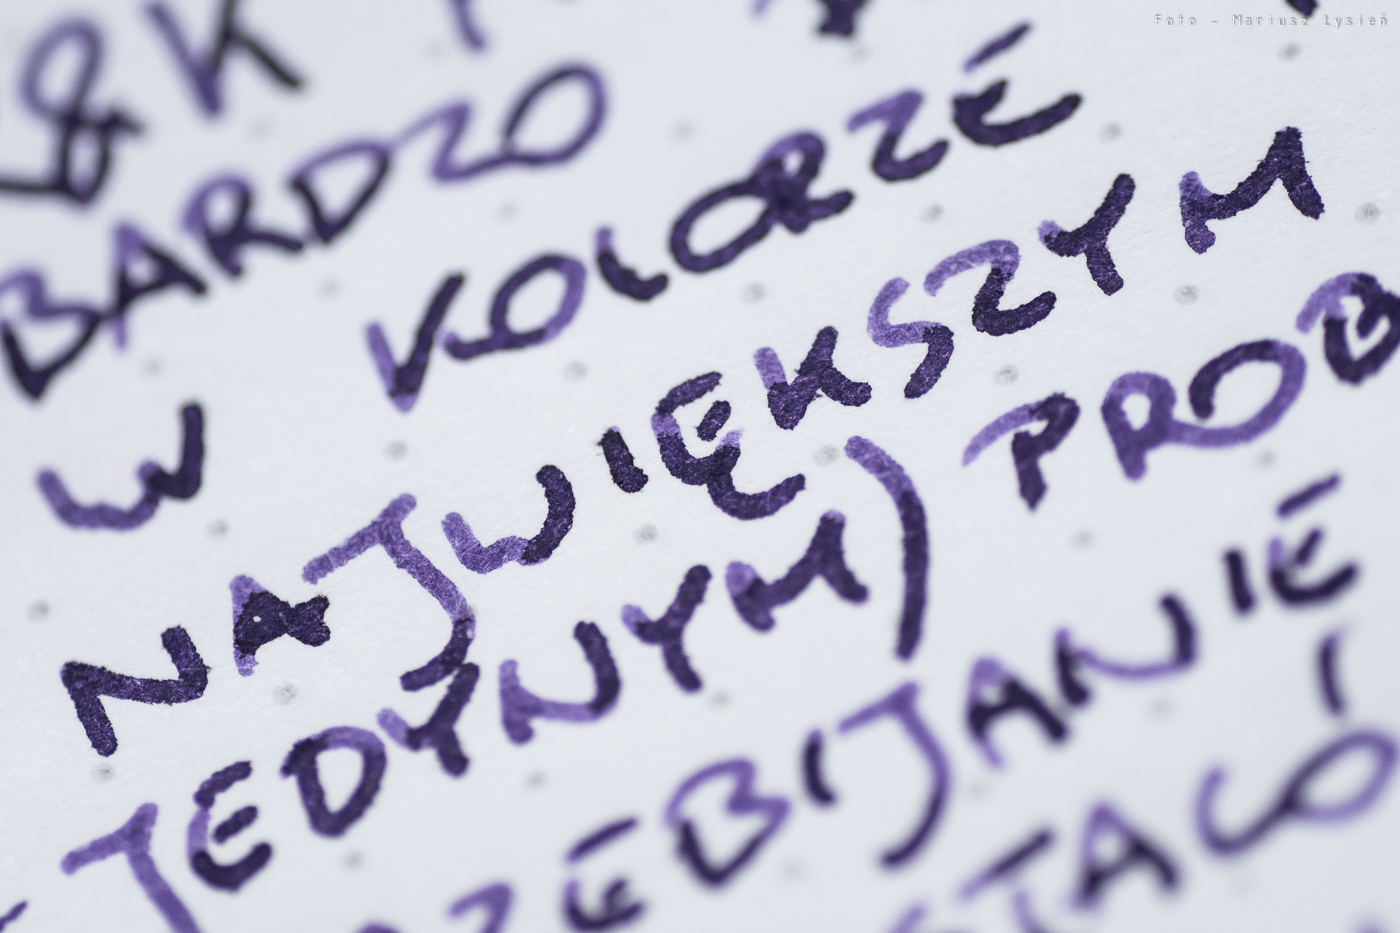 Foto - Mariusz Łysień
BARDZO
W KOLORZE
NAJWIĘKSZYM
JEDYNYM) PROB
ZEBIJANIE